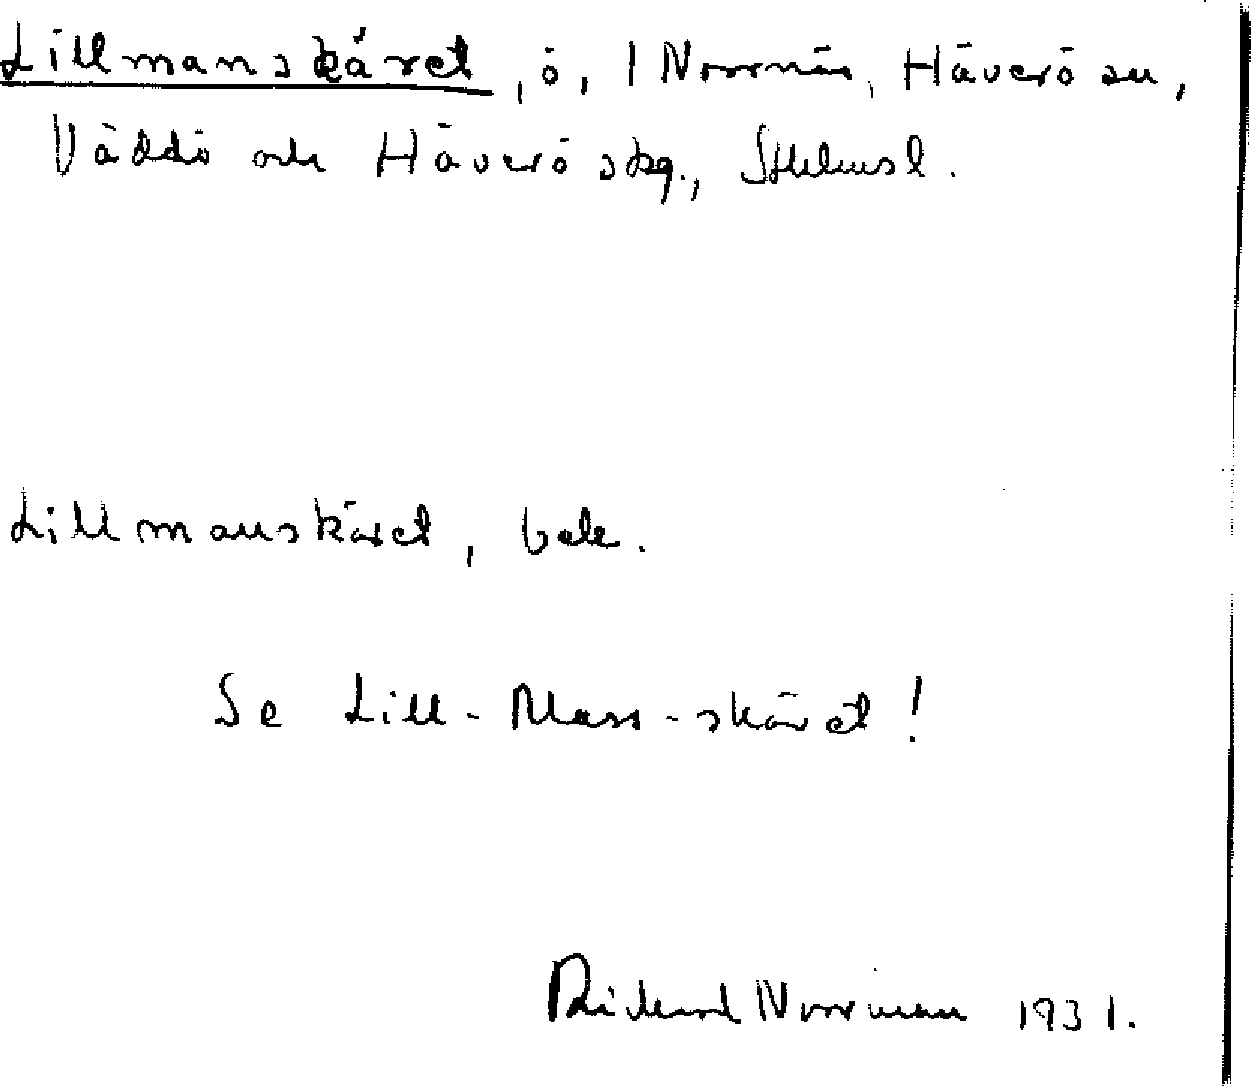 Lillmanskäret, ö, 1 Norrnäs, Häverö sn,
Väddö och Häverö skg., Sthlmsl.
Lillmanskäret, bek.
Se Lill-Mass-skäret!
Rickard Norrman 1931.